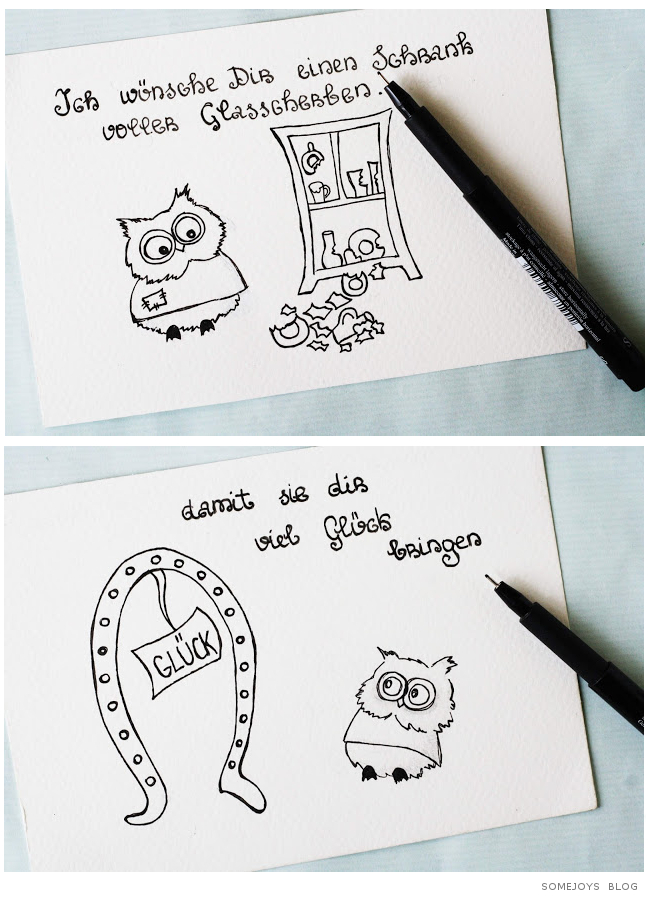 Ich wünsche Dir einen Schrank
voller Glasscherben.
damit sie dir
viel Glück
bringen
GLÜCK
SOMEJOYS BLOG